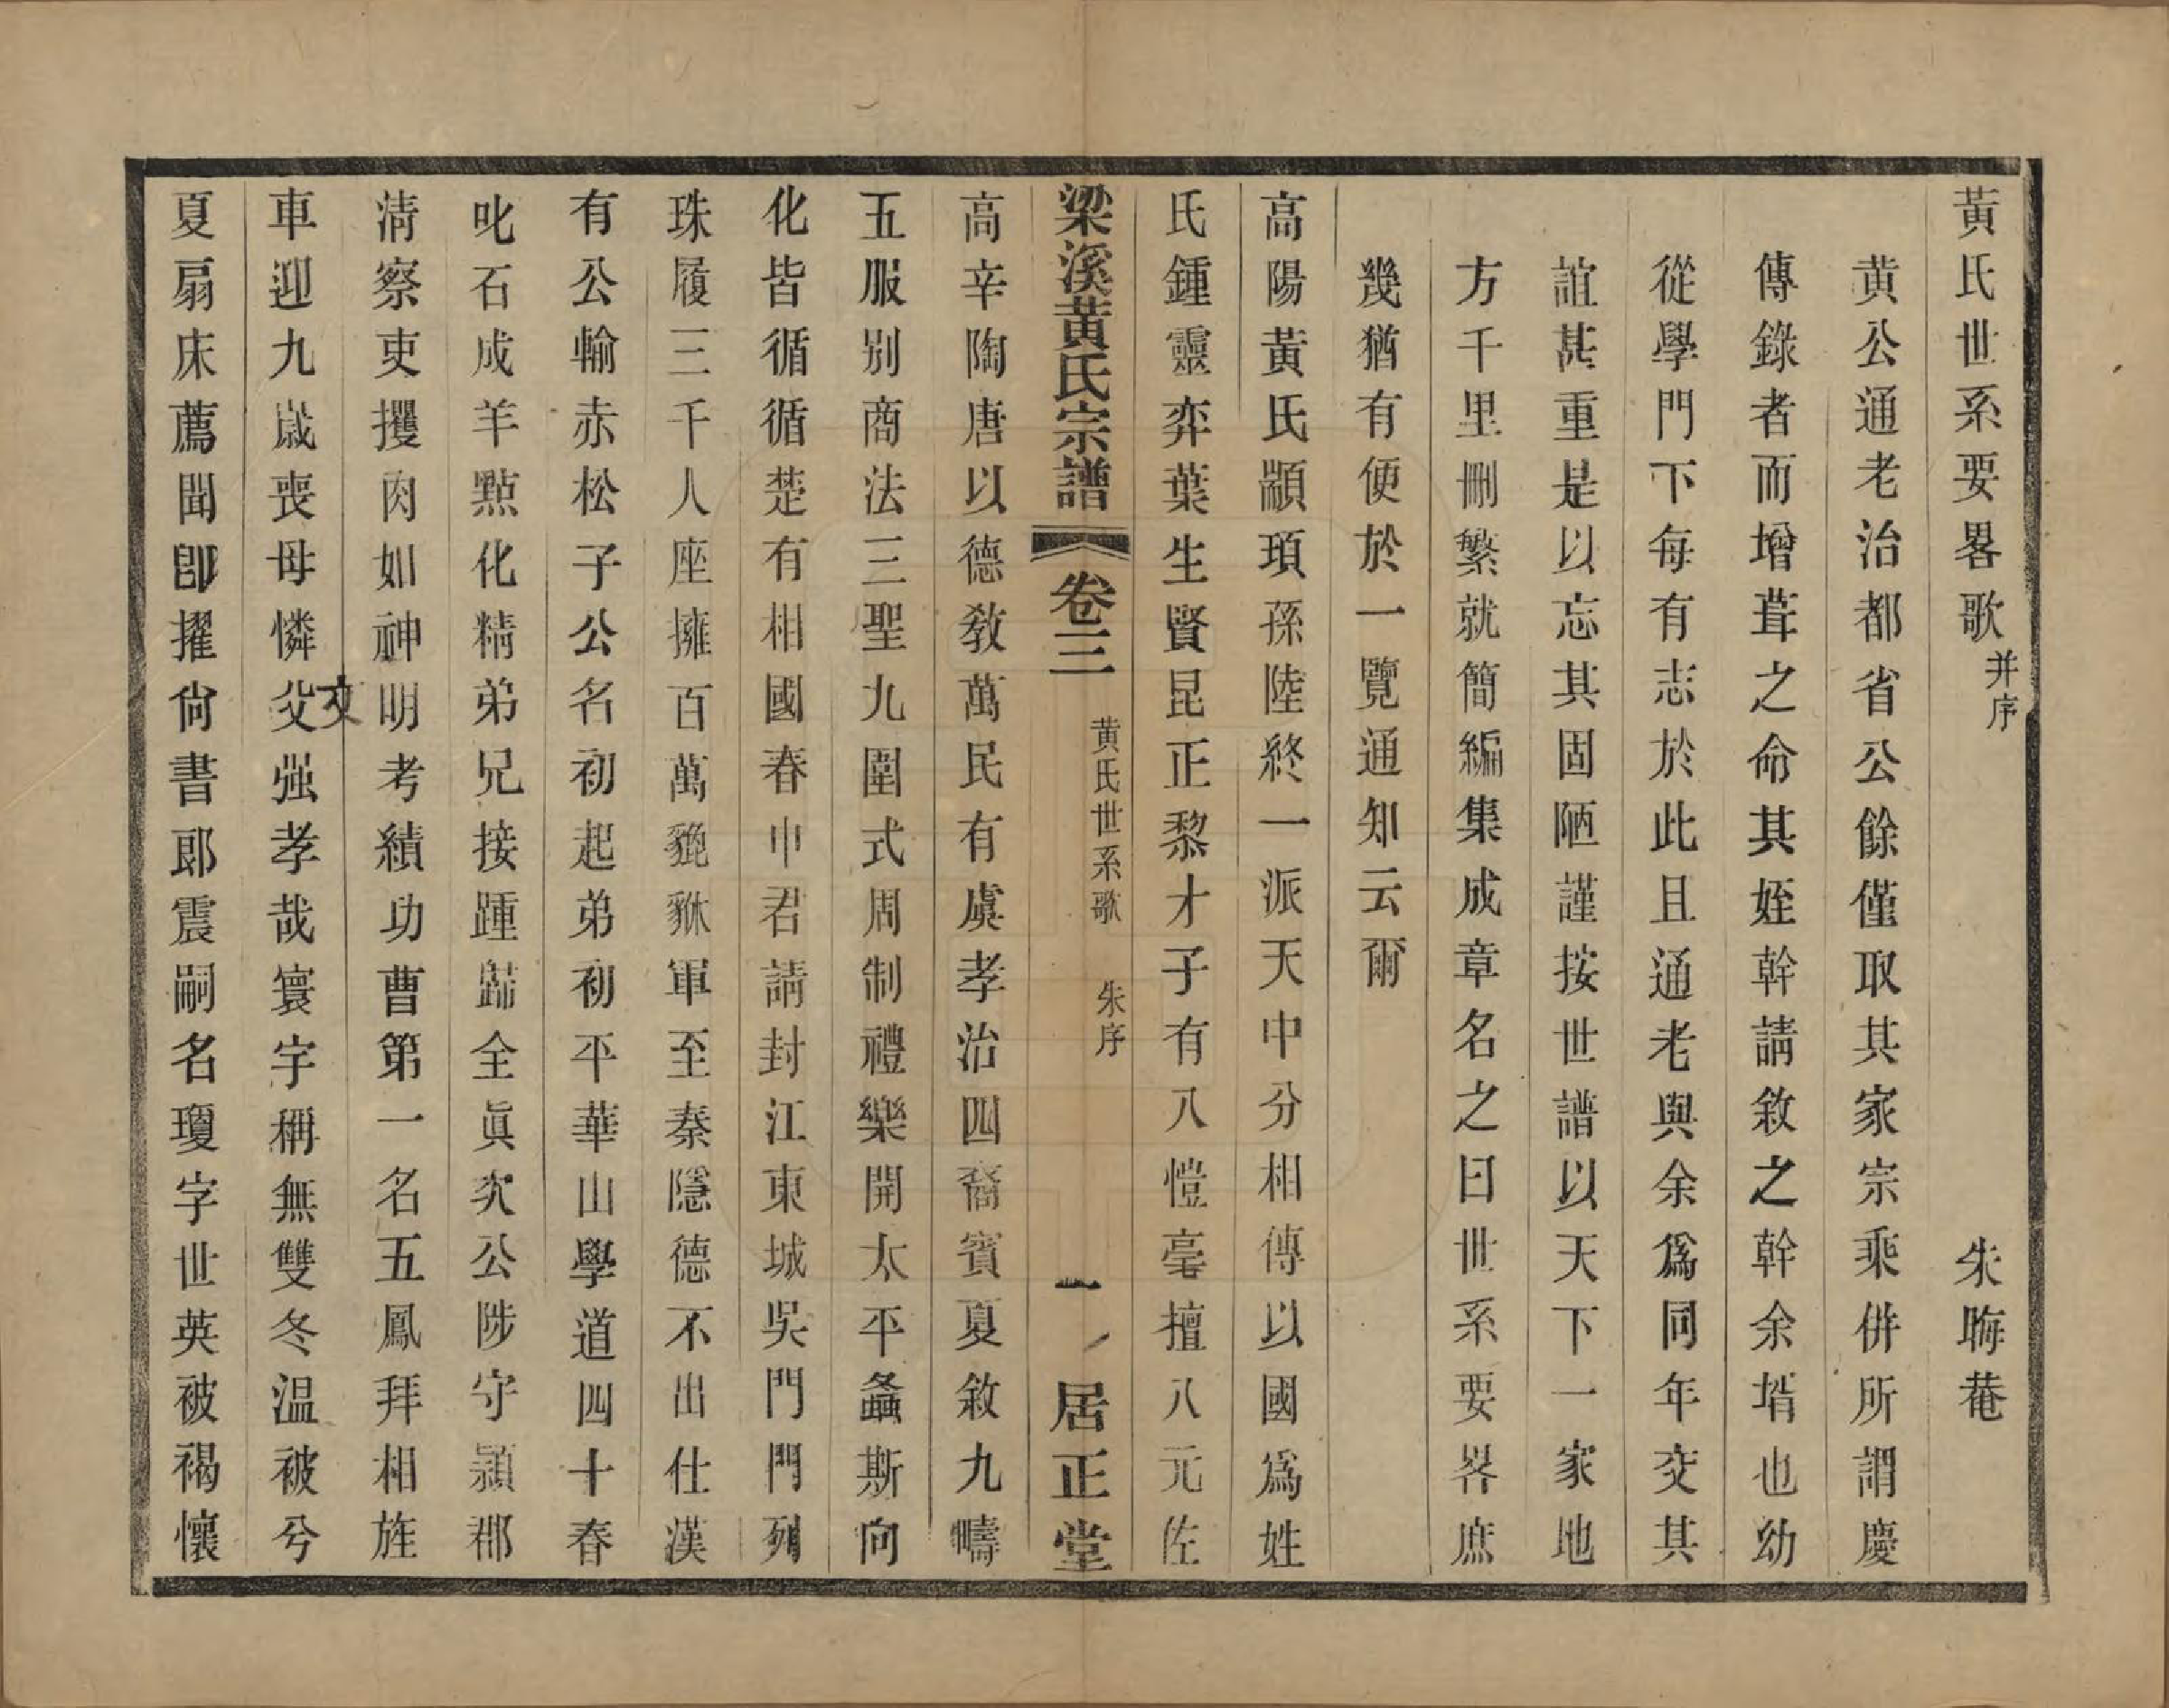 黃氏世系要畧歌并序 朱晦菴
黃公通老治都省公餘僅取其家宗乘併所謂慶
傳錄者而增葺之命其姪幹請敘之幹余壻也幼
從學門下每有志於此且通老與余爲同年交其
誼甚重是以忘其固陋謹按世譜以天下一家地
方千里刪繁就簡編集成章名之曰世系要畧庶
幾猶有便於一覽通知云爾
高陽黃氏顓頊孫陸終一派天中分相傳以國爲姓
氏鍾靈弈葉生賢昆正黎才子有八愷亳擅八元佐
梁溪黃氏宗譜 卷三 黃氏世系歌 朱序 一 居正堂
高辛陶唐以德教萬民有虞孝治四裔賓夏敘九疇
五服別商法三聖九圍式周制禮樂開太平螽斯向
化皆循循楚有相國春申君請封江東城吳門門列
珠履三千人座擁百萬貔貅軍至秦隱德不出仕漢
有公輸赤松子公名初起弟初平華山學道四十春
叱石成羊點化精弟兄接踵躋全眞次公陟守潁郡
淸察吏攫肉如神明考績功曹第一名五鳳拜相旌
車迎九歲喪母憐父文强孝哉寰宇稱無雙冬温被兮
夏扇床薦聞卽擢尙書郞震嗣名瓊字世英被褐懷